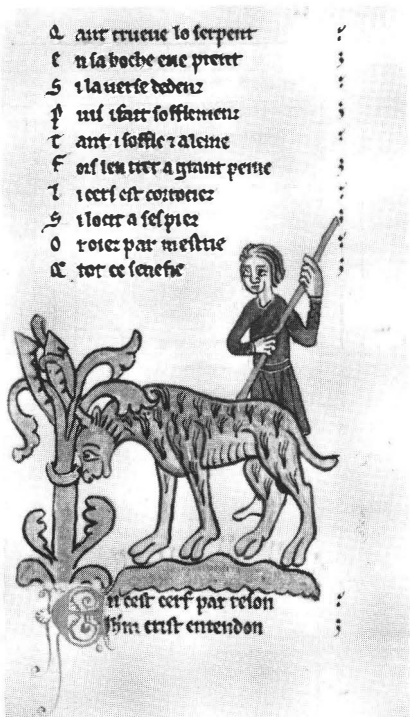 Q ant trueue lo serpent
E n sa boche eue prent
S i la uerse dedenz
P uis i fait sofflemenz
T ant i soffle ⁊ aleine
F ors len tret a grant peine
I cers est corrociez
S i locit a ses piez
O roiez par mestrie
Q tot ce senefie
En cest cerf par reson
Ihm crist entendon